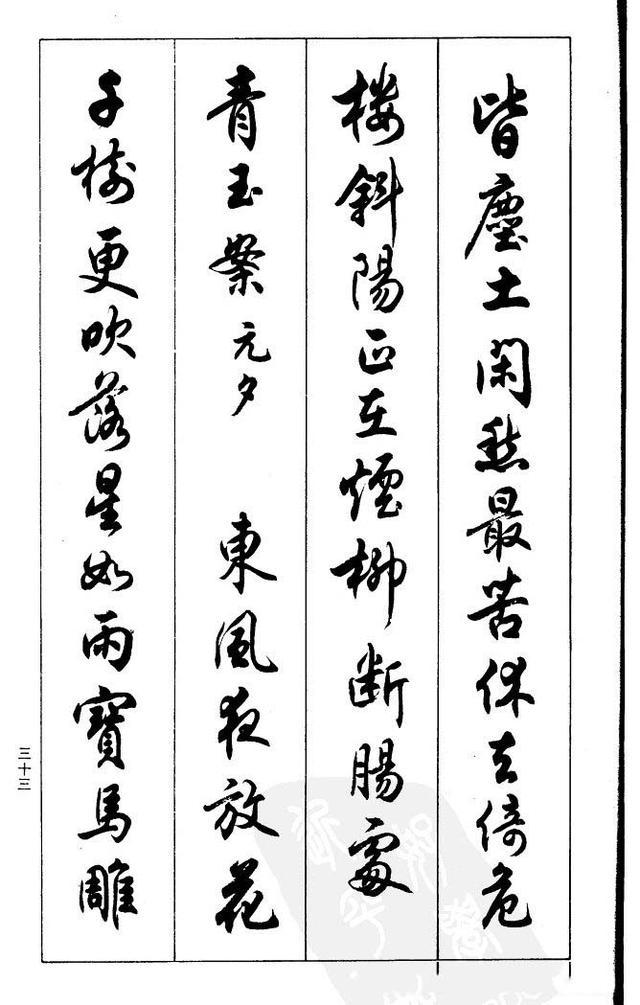 皆塵土閑愁最苦休去倚危
楼斜陽正在煙柳斷腸處
青玉案元夕 東風夜放花
千樹更吹落星如雨寶馬雕
三十三